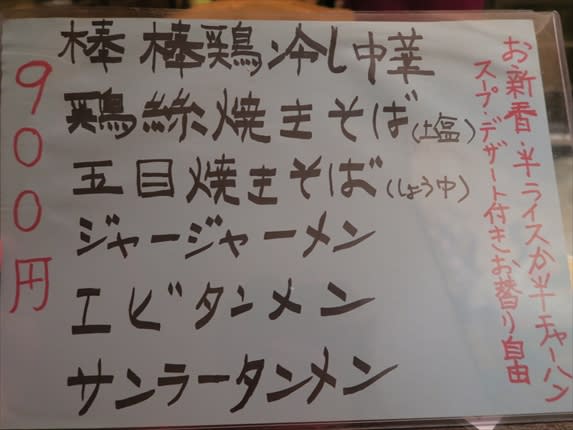 棒棒鶏冷し中華
鶏絲焼きそば(塩)
五目焼きそば(しょう中)
ジャージャーメン
エビタンメン
サンラータンメン
900円
お新香・半ライスか半チャーハン
スープ・デザート付きお替り自由